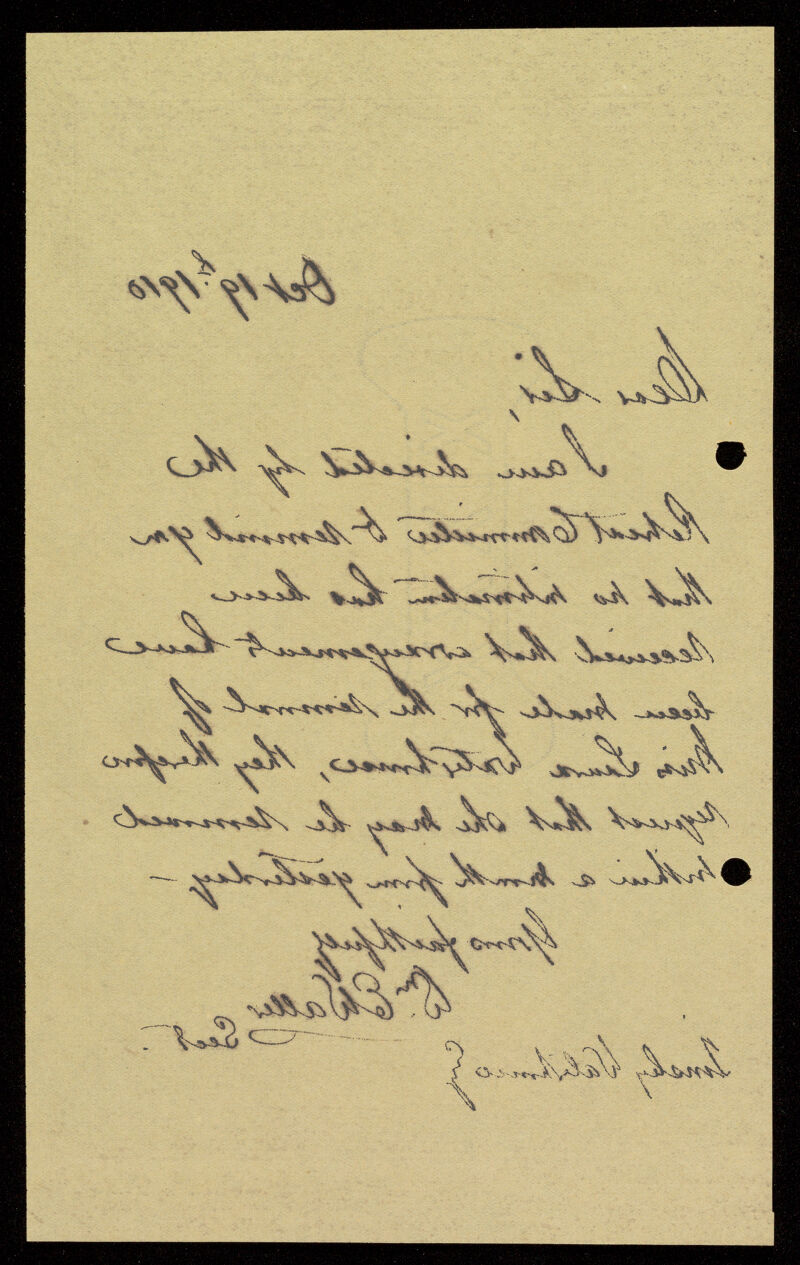 Oct 19th 1910
Dear Sir,
I am directed by the
Retreat Committee to remind you
that no intimation has been
received that arrangements have
been made for the removal of
Miss Laura Waterhouse, they therefore
request that she may be removed
within a month from yesterday —
Yours faithfully
Wm. E Waller
Sect.
Waterhouse Esq